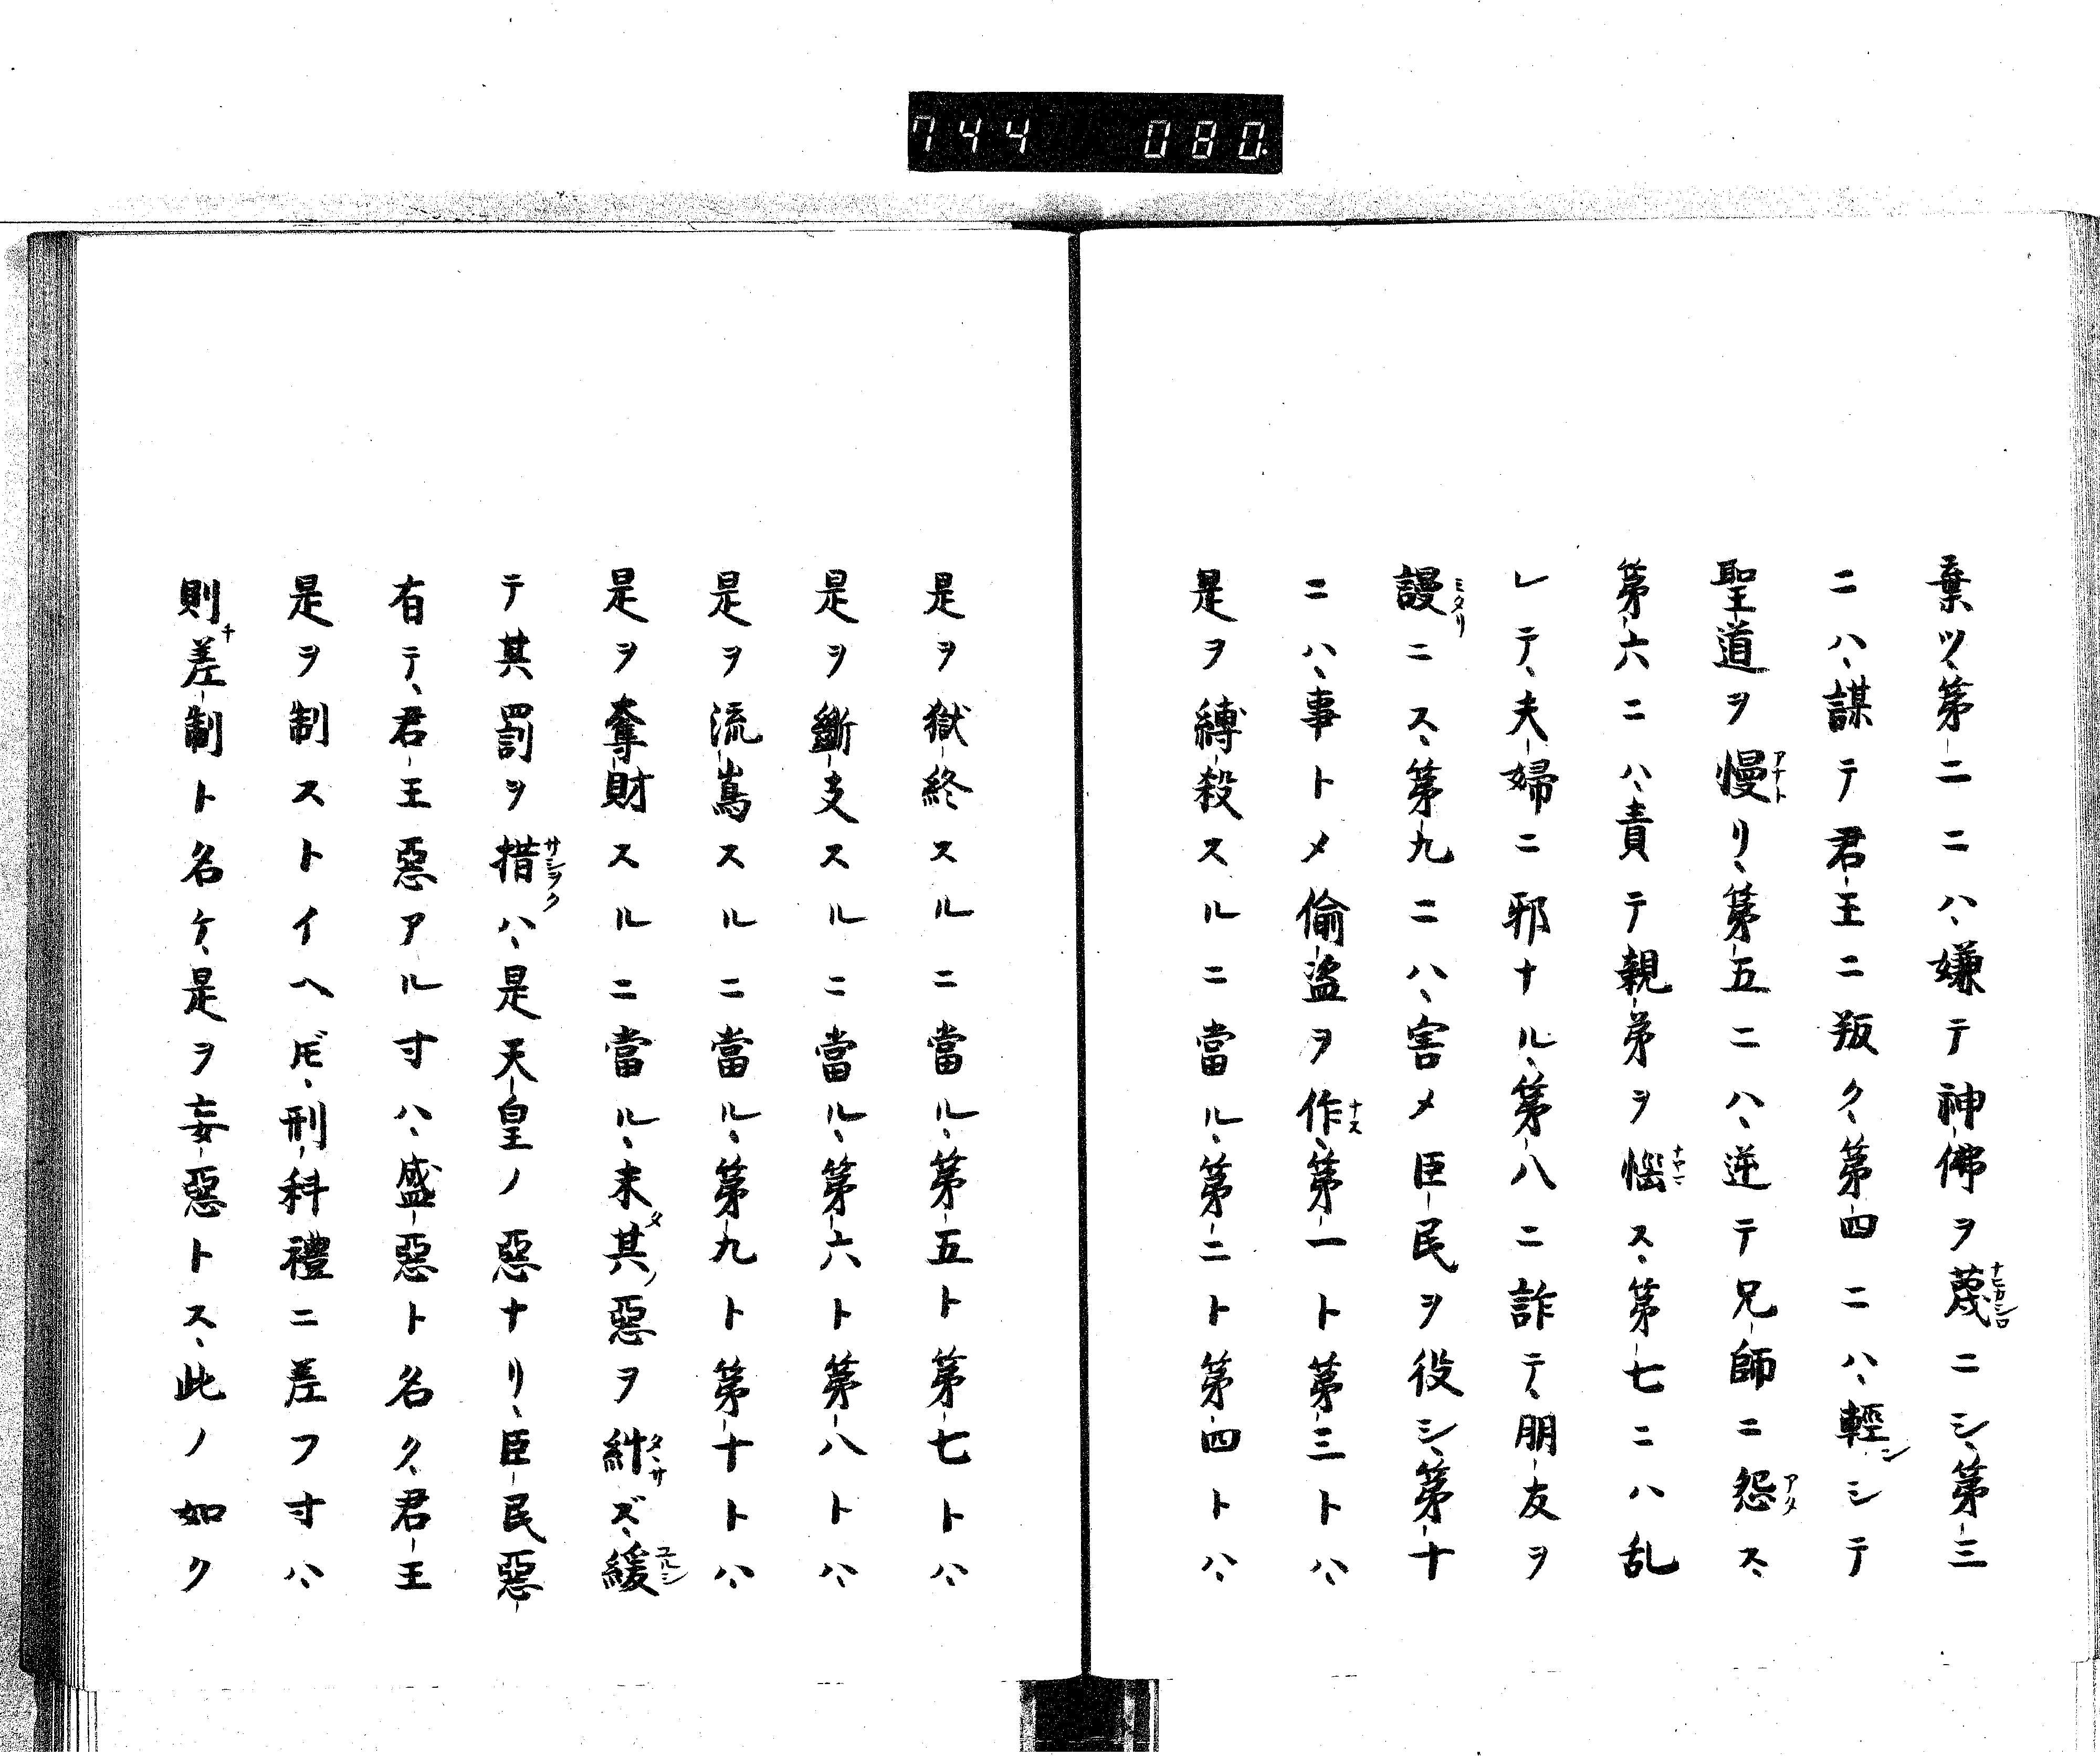 744 080
棄ツ、第二ニハ、嫌テ神佛ヲ蔑ナヒカシロニシ、第三
ニハ、謀テ君王ニ叛ク、第四ニハ、輕シシテ
聖道ヲ慢アナトリ、第五ニハ、逆テ兄師ニ怨アタス、
第六ニハ、責テ親弟ヲ惱ナヤマス、第七ニハ乱
レテ、夫婦ニ邪ナル、第八ニ詐テ、朋友ヲ
謾ミタリニス、第九ニハ、害メ臣民ヲ役シ、第十
ニハ、事トメ偷盗ヲ作ナス、第一ト第三トハ、
是ヲ縛殺スルニ當ル、第二ト第四トハ、
是ヲ獄終スルニ當ル、第五ト第七トハ、
是ヲ斷支スルニ當ル、第六ト第八トハ、
是ヲ流嶌スルニ當ル、第九ト第十トハ、
是ヲ奪財スルニ當ル、未タ其ノ惡ヲ糾タヽサズ、緩ユルシ
テ其罰ヲ措サシヲクハ、是天皇ノ惡ナリ、臣民惡
有テ、君王惡アル寸ハ、盛惡ト名ク、君王
是ヲ制ストイヘ𪜈、刑科禮ニ差フ寸ハ、
則チ差制ト名ケ、是ヲ妄惡トス、此ノ如ク